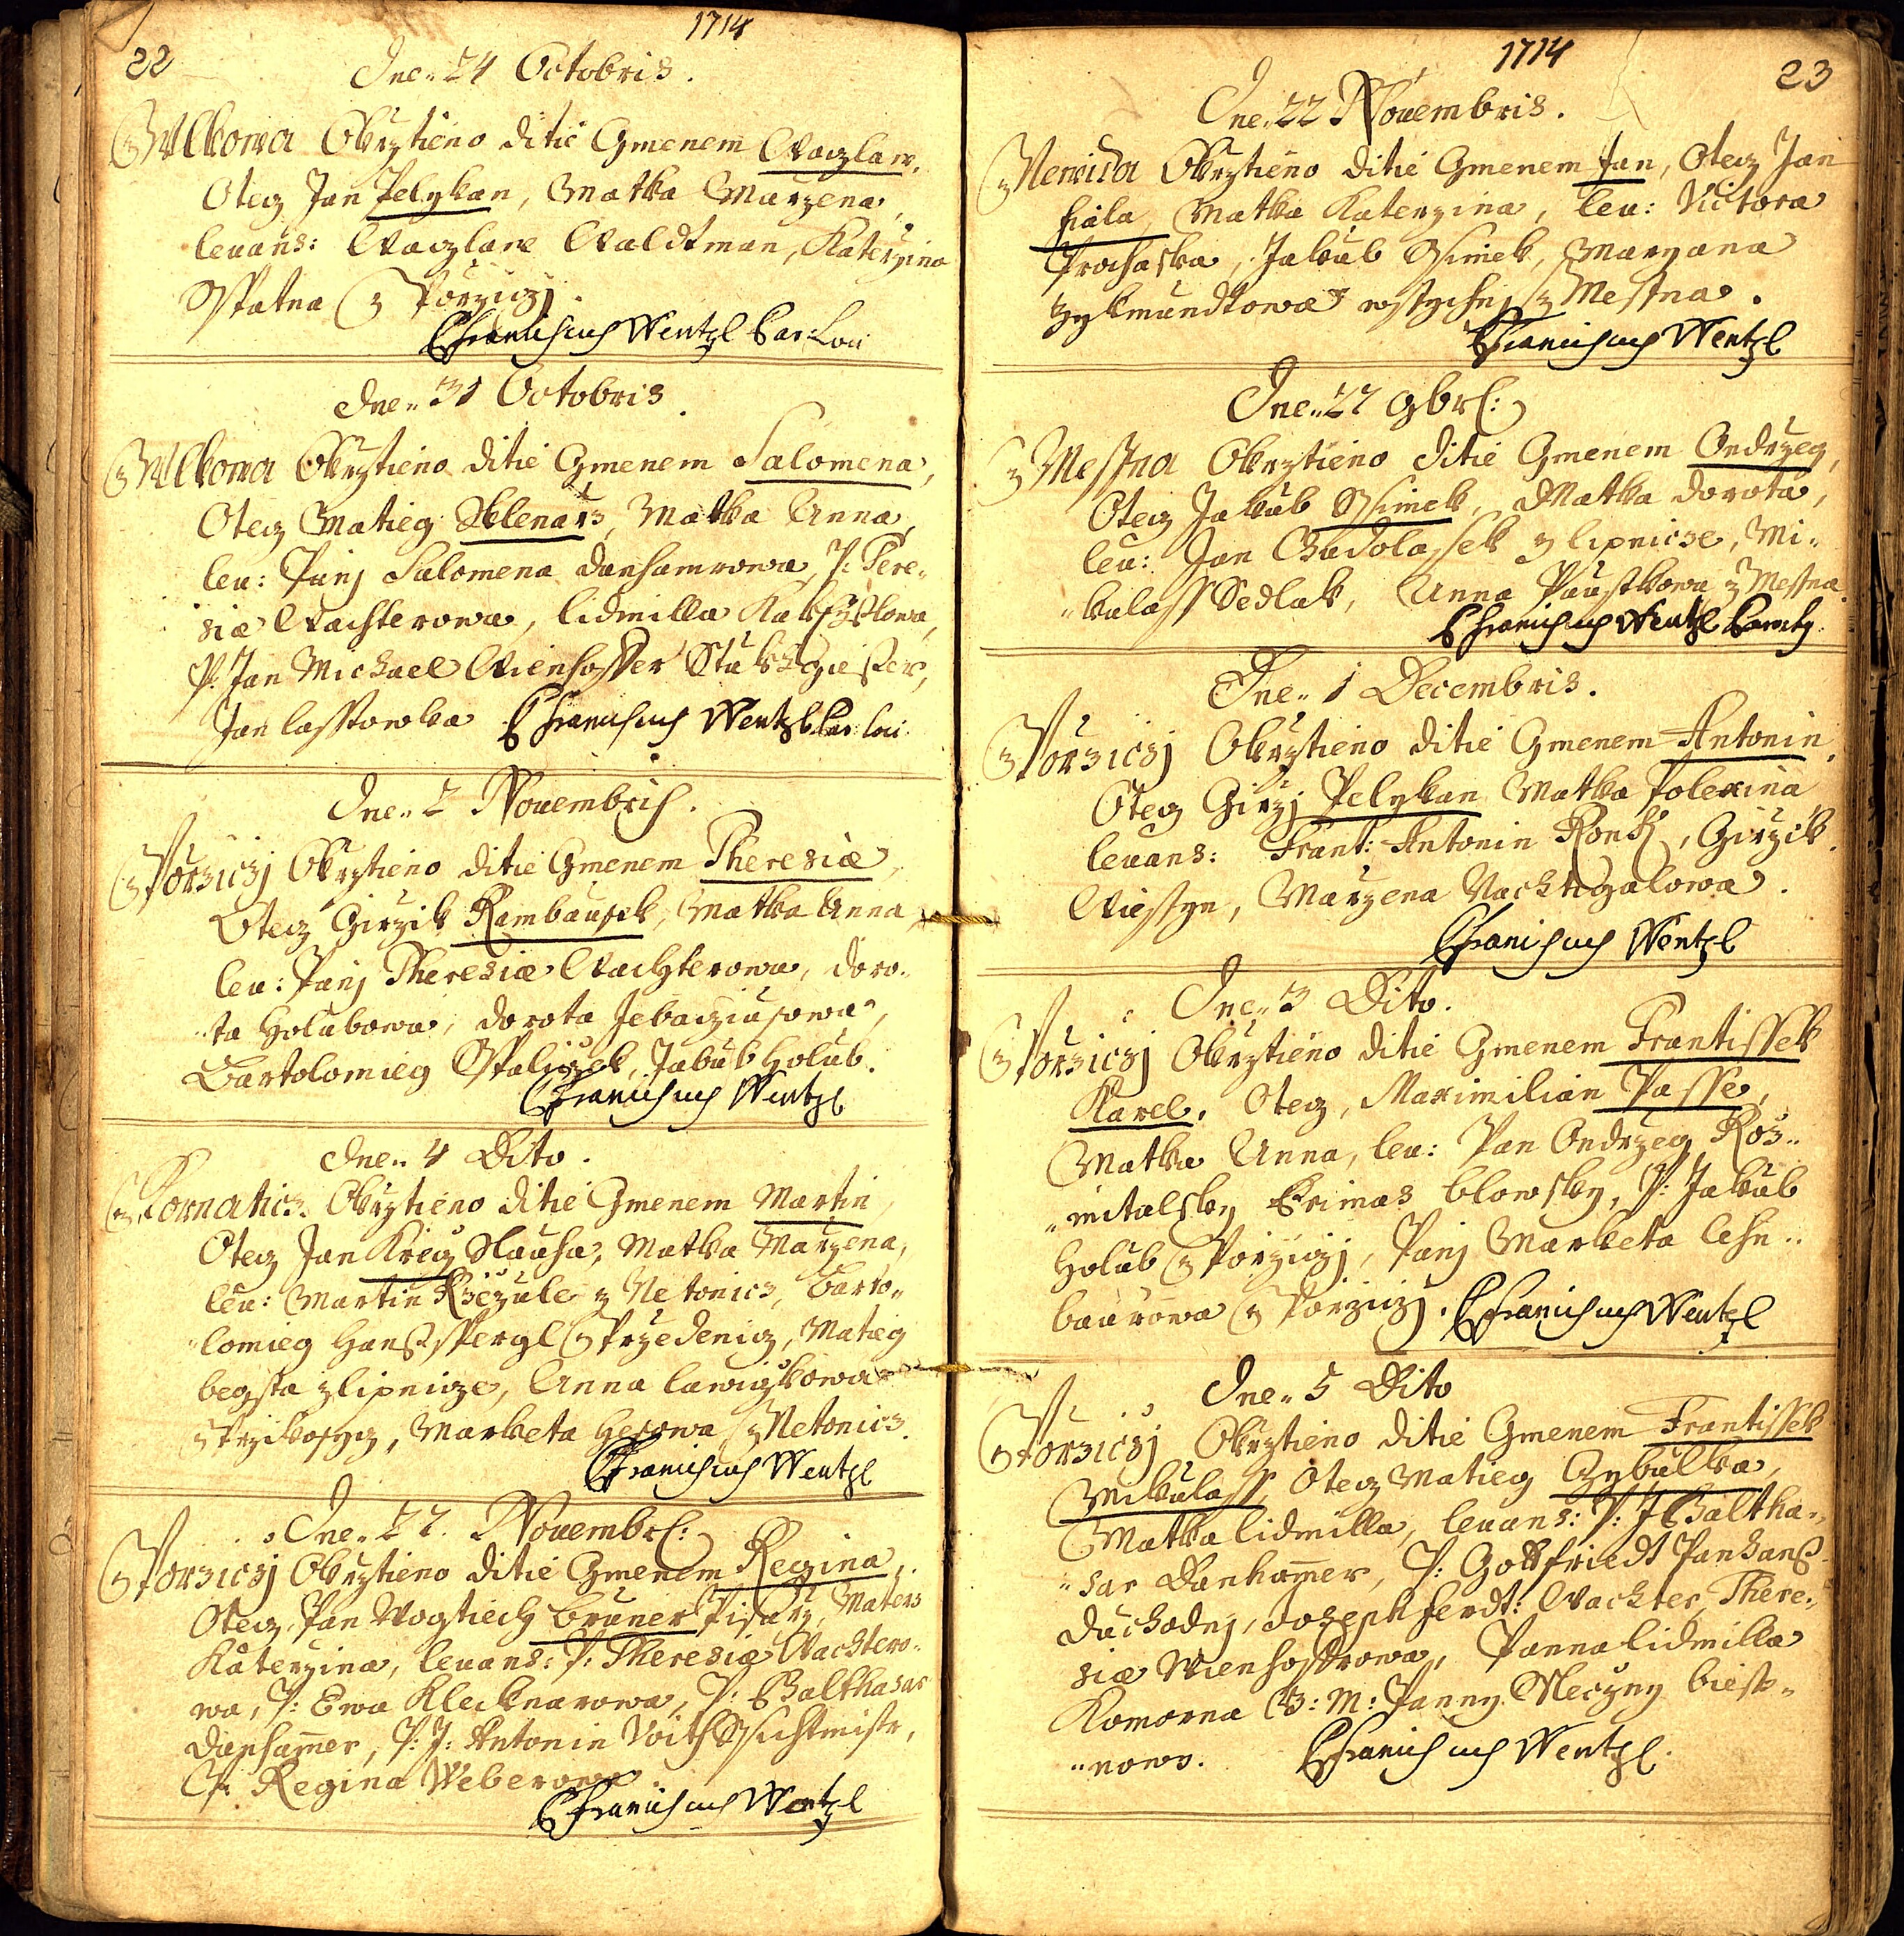 22
1714
Dne 24 Octobris.
Z Wlkowa Okrztieno ditie Gmenem Waczlaw,
Otecz Jan Pelykan, Matka Marzena,
levans: Waczlaw Waldtman, Katerzina
Sspatna z Porziczj.
Franciscus Wentzl
Dne 31 Octobris
Z Wlkowa Okrztieno ditie Gmenem Salomena,
Otecz Matieg Sklenarz, Matka Anna,
lev: Panj Salomena Danhamrowa, P: There„
sia Wachterowa, lidmilla
P: Jan Michael Wienhoffer
Jan lasstowka Franciscus Wentzl
Dne 2 Novembris.
Z Porziczj Okrztieno ditie Gmenem Theresia,
Otecz Girzik Rambausek, Matka Anna
lev: Panj Theresia Wachterowa, doro„
„ta Holubowa, dorota
Bartolomieg Sspaliczek, Jakub Holub.
Franciscus Wentzl
Dne 4 Dito.
Z Okrztieno ditie Gmenem Martin,
Otecz Jan Kreicz Slauha, Matka Marzena,
lev: Martin Rzezule z Netonicz, barto„
„lomieg z Przedenicz, Matieg
begsta z lipnicze, Anna lawiczkowa
z Przikosycz, Marketa z Netonicz.
Franciscus Wentzl
Dne 22. Novembr:
Z Porziczj Okrztieno ditie Gmenem Regina,
Otecz Pan Wogtiech bruner Pisarz, Maters
Katerzina, levans: P: Theresia Wachtero„
wa, P: Ewa Klecknarowa, P: Balthasar
Danhamer, P: J: Antonin Voith
Regina Weberowa.
Franciscus Wentzl
1714
23
Dne 22 Novembris.
Z Newida Okrztieno ditie Gmenem Jan, Otecz Jan
fiala, Matka Katerzina, lev: Victora
Prochaska, Jakub Ssimek, Maryana
Zykmundkowa wssychnj z Mestna.
Franciscus Wentzl
Dne 27 9br:
Z Mestna Okrztieno ditie Gmenem Ondrzeg,
Otecz Jakub Ssimek, Matka dorota,
lev: Jan z lipnicze, Mi„
„kulass Sedlak, Anna Paustkowa z Mestna.
Franciscus Wentzl
Dne 1 Decembris.
Z Porziczj Okrztieno ditie Gmenem Antonin.
Otecz Girzj Pelykan Matka Polexina
levans: Frant: Antonin, Girzik
Marzena Nachtigalowa.
Franciscus Wentzl
Dne 3 Dito.
Z Porziczj Okrztieno ditie Gmenem Frantissek
Karel. Otecz, Maximilian Passe,
Matka Anna, lev: Pan Ondrzeg Roz„
„mitalsky Primas blowsky, P: Jakub
Holub z Porziczj, Panj Marketa lehn„
baurowa z Porziczj. Franciscus Wentzl
Dne 5 Dito
Z Porziczj Okrztieno ditie Gmenem Frantissek
Mikulass, Otecz Matieg Czybulka,
Matka lidmilla, levans: P: J Baltha„
„sar Danhamer, P: Gottfriedt Panhanß
duchodnj, Joseph ferdt: Wachter, There„
sia Wienhofrowa, Panna lidmilla
Komorna G: M: Panny Sleczny biess„
„nows. Franciscus Wentzl.